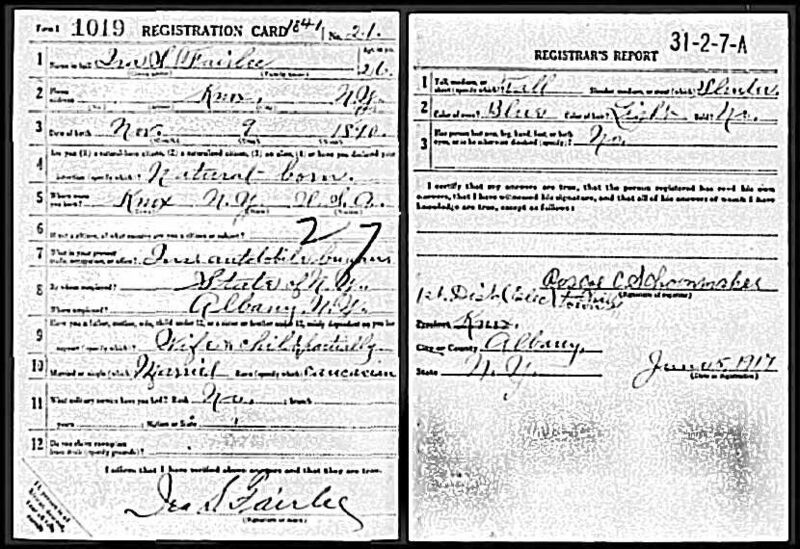 Form 1 1019 REGISTRATION CARD 1841 No. 21
1 Name in full Ira S Fairlee Age, in yrs. 26
(Given name) (Family name)
2 Home address Knox, N.Y.
3 Date of birth Nov. 9 1890
4 Are you (1) a natural-born citizen, (2) a naturalized citizen, (3) an alien, (4) or have you declared your
intention (specify which)? Natural born.
5 Where were you born? Knox N.Y. U.S.A.
6 If not a citizen, of what country are you a citizen or subject?
27
7 What is your present trade, occupation, or office?
8 By whom employed? State of N.Y.
Where employed? Albany N.Y.
9 Have you a father, mother, wife, child under 12, or a sister or brother under 12, solely dependent on you for
support (specify which)? Wife & child partially
10 Married or single (which)? Married Race (specify which)? Caucasian
11 What military service have you had? Rank No. ; branch
years ; Nation or State
12 Do you claim exemption from draft (specify grounds)?
I affirm that I have verified above answers and that they are true.
Ira S Fairlee
(Signature or mark)
REGISTRAR'S REPORT 31-2-7-A
1 Tall, medium, or short (specify which)? Tall Slender, medium, or stout (which)? Slender
2 Color of eyes? Blue Color of hair? Light Bald? No.
3 Has person lost arm, leg, hand, foot, or both eyes, or is he otherwise disabled (specify)? No
I certify that my answers are true, that the person registered has read his own
answers, that I have witnessed his signature, and that all of his answers of which I have
knowledge are true, except as follows:
Roscoe C Schoonmaker
(Signature of registrar)
1st. Dist.
Precinct Knox.
City or County Albany.
State N.Y.
June 5 1917
(Date of registration)